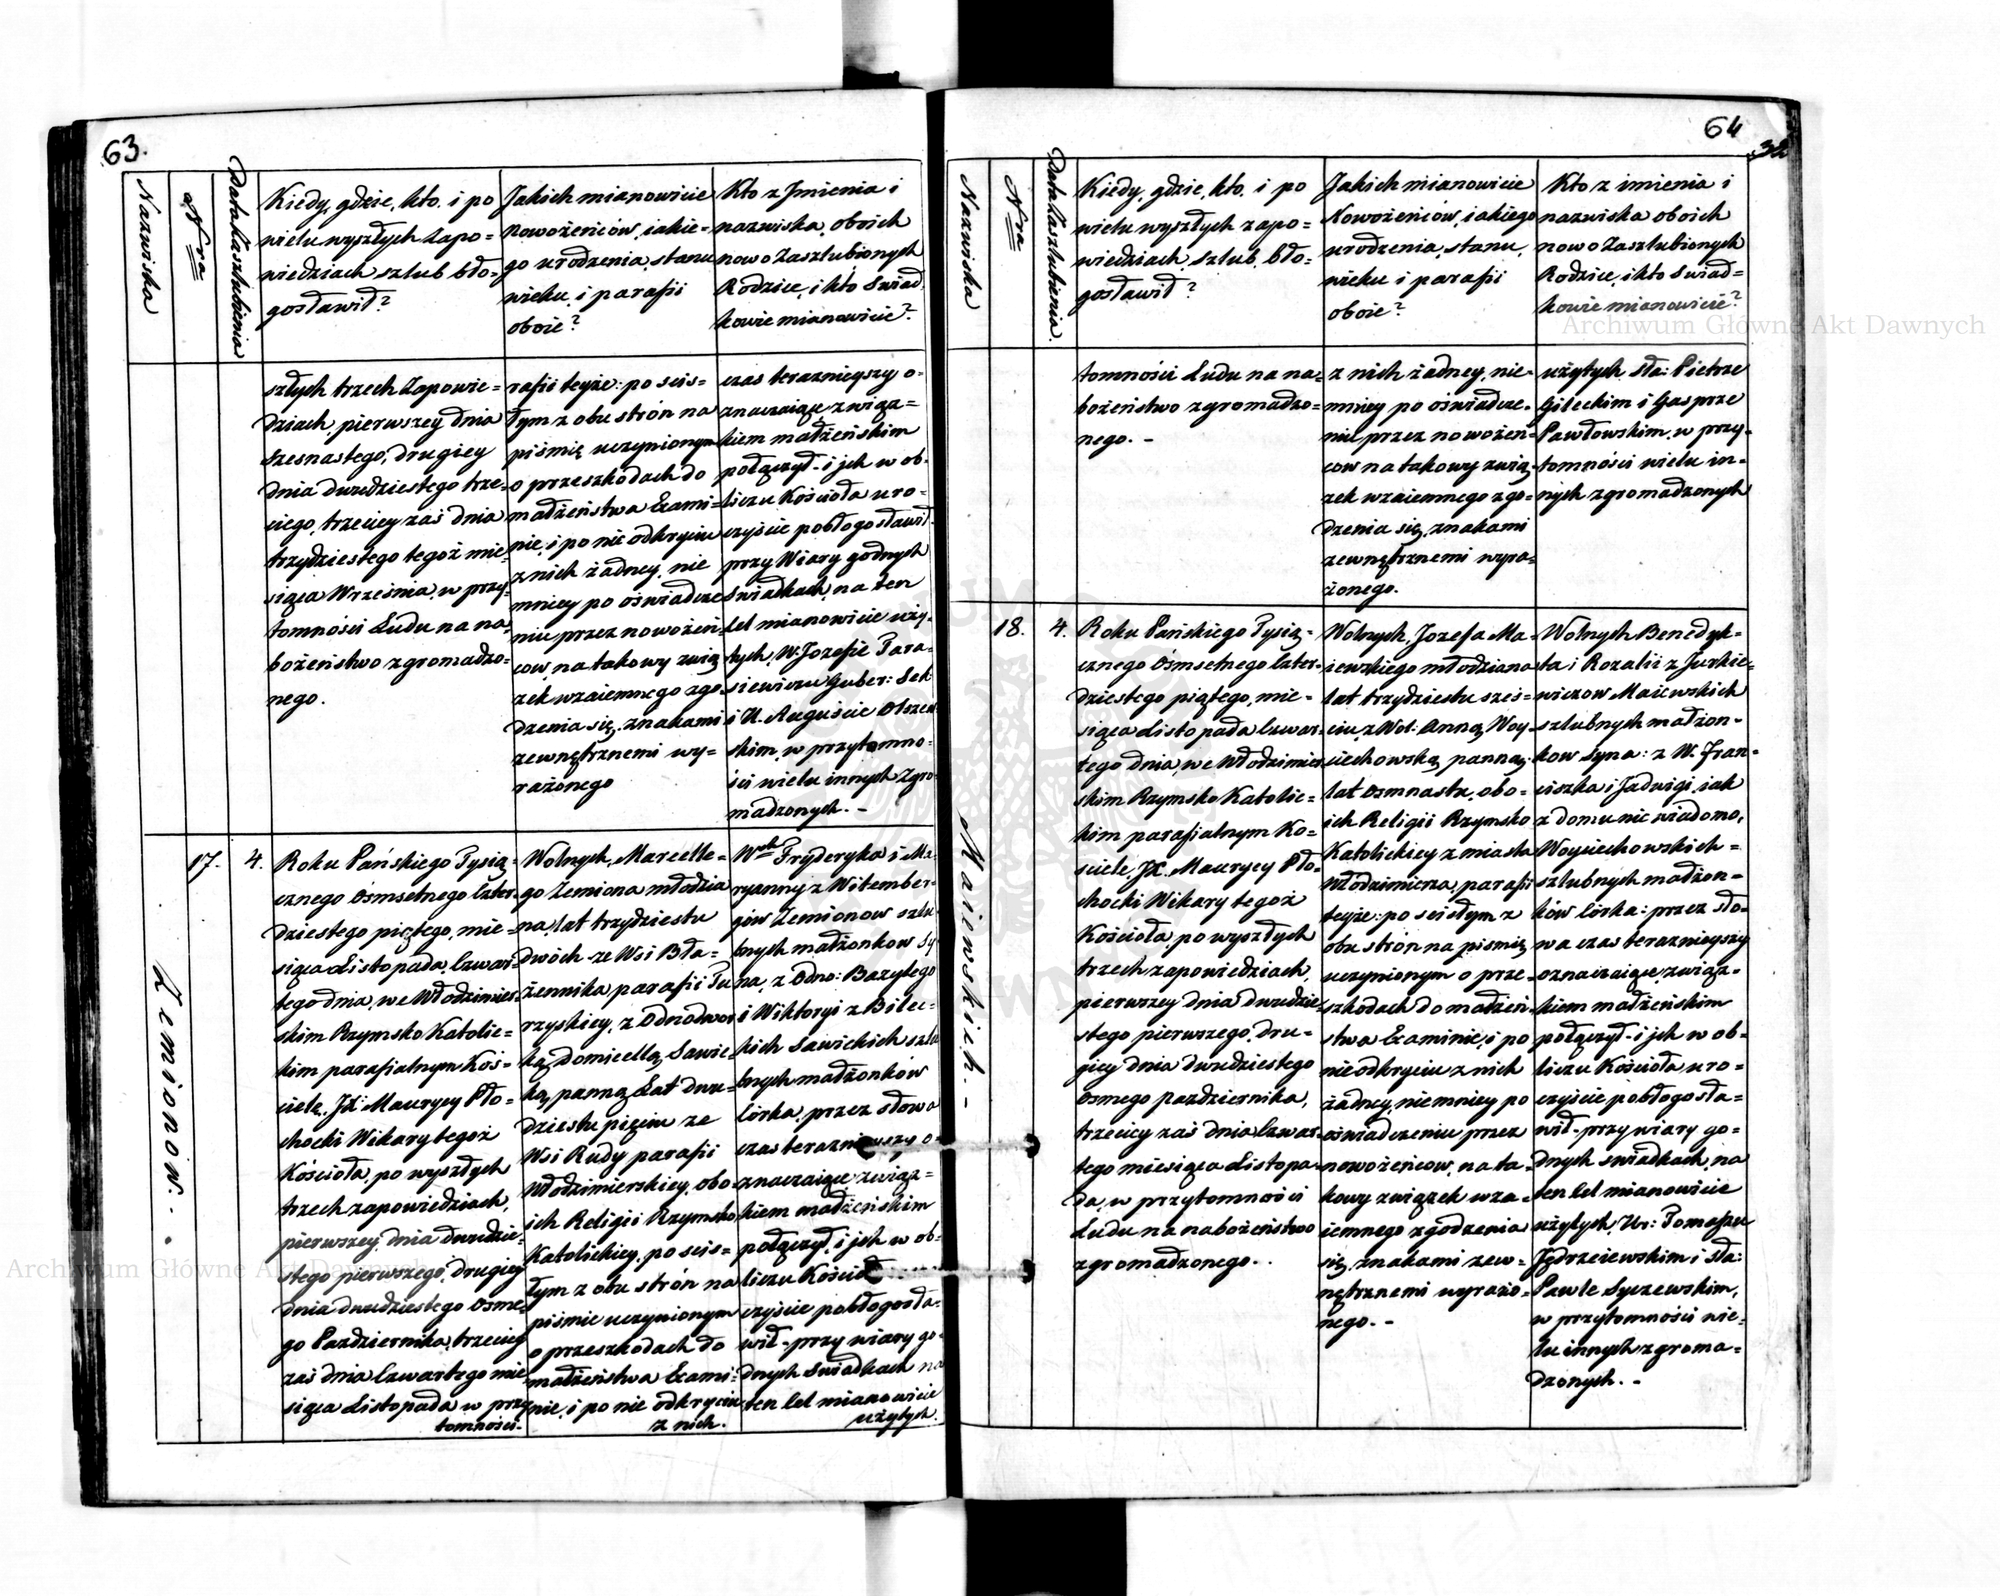 63.
Nazwiska
Nra
Data Zaszlubienia
Kiedy, gdzie, kto. i po
wielu wyszłych Zapo=
wiedziach szlub bło=
gosławił?
Jakich mianowicie
Nowożeńców, jakie=
go urodzenia, stanu
wieku, i parafii
oboie?
Kto z Jmienia i
nazwiska, oboich
nowo Zaszlubionych
Rodzice, i kto Swiad
kowie mianowicie?
szłych trzech Zapowie=
dziach, pierwszey dnia
szesnastego, drugiey
dnia dwudziestego trze=
ciego, trzeciey zaś dnia
trzydziestego tegoż mie=
siąca Wrzesnia, w przy=
tomności Ludu na na=
bożeństwo zgromadzo=
nego.
rafii teyże: po scis=
łym z obu strón na
piśmię uczynionym
o przeszkodach do
małżeństwa Exami=
nie, i po nie odkryciu
z nich żadney, nie
mniey po oświadcze
niu przez nowożeń
cow, na takowy zwią
zek wzaiemnego zgo
dzenia się, znakami
zewnętrznemi wy=
rażonego
czas teraznieyszy o=
znaczaiące związ=
kiem małżeńskim
połączył- i jch w ob=
liczu Kościoła uro=
czyście pobłogosławił
przy Wiary godnych
Swiadkach, na ten
cel mianowicie uży=
tych, W. Jozefie Tara=
siewiczu Guber: Sek
i U. Auguście Olszew
skim, w przytomno=
ści wielu innych Zgro
madzonych. -
Zemionow. .
17.
4.
Roku Pańskiego Tysią=
cznego ósmsetnego czter
dziestego piątego, mie=
siąca Listopada, czwar=
tego dnia, we Włodzimier
skim Rzymsko Katolic=
kim parafialnym Koś=
ciele, JX Maurycy Pło=
chocki Wikary tegoż
Kościoła, po wyszłych
trzech zapowiedziach,
pierwszey, dnia dwudzie=
stego pierwszego, drugiey
dnia dwudziestego osme=
go Pazdziernika, trzeciey
zaś dnia czwartego mie
siąca Listopada w przy
tomności.
Wolnych, Marcelle=
go Zemiona młodzia
na, lat trzydziestu
dwóch ze Wsi Bła=
żennika parafii Tu
rzyskiey, z Odnodwor
ką, Domicellą, Sawic
ką, panną, Lat dwu=
dziestu pięciu ze
Wsi Rudy parafii
Włodzimierskiey, obo=
ich Religii Rzymsko
Katolickiey, po scis=
łym z obu strón na
piśmie uczynionym
o przeszkodach do
małżeństwa Exami=
nie, i po nie odkryciu
z nich.
Fryderyka i Ma
ryanny z Witember=
gów Zemionow szlu=
bnych małżonkow Sy
na, z Odno: Bazylego
i Wiktoryi z Bilec=
kich Sawickich szlu
bnych małżonków
Córka, przez słowa
czas teraznieyszy o=
znaczaiące związ=
kiem małżeńskim
połączył, i jch w ob=
liczu
czyście pobłogosła=
wił- przy wiary go=
dnych Swiadkach na
ten cel mianowicie
użytych.
64
32
Nazwiska
Nra
Data Zaszlubienia.
Kiedy, gdzie, kto. i po
wielu wyszłych zapo=
wiedziach, szlub, bło=
gosławił?
Jakich mianowicie
Nowożeńców, iakiego
urodzenia, stanu,
wieku i parafii
oboie?
Kto z imienia i
nazwiska oboich
nowo Zaszlubionych
Rodzice, i kto Swiad=
kowie mianowicie?
tomności Ludu na na=
bożeństwo zgromadzo=
nego. -
z nich żadney, nie=
mniey po oświadcze=
niu przez nowożeń=
cow na takowy zwią=
zek wzaiemnego zgo=
dzenia się, znakami
zewnętrznemi wyra=
żonego.
użytych, sła: Pietrze
Gileckim i Gasprze
Pawłowskim, w przy=
tomności wielu in=
nych zgromadzonych
Maiewskich. -
18.
4.
Roku Pańskiego Tysią=
cznego ósmsetnego czter=
dziestego piątego, mie=
siąca Listopada czwar=
tego dnia, we Włodzimier
skim Rzymsko Katolic=
kim parafialnym Ko=
sciele, JX. Maurycy Pło=
chocki Wikary tegoż
Kościoła, po wyszłych
trzech zapowiedziach,
pierwszey dnia dwudzie=
stego pierwszego, dru=
giey dnia dwudziestego
osmego pazdziernika,
trzeciey zaś dnia czwar=
tego miesiąca Listopa=
da, w przytomności
Ludu na nabożeństwo
zgromadzonego. .
Wolnych, Jozefa Ma=
iewskiego młodziana
lat trzydziestu sześ=
ciu z Wol: Anną Woy=
ciechowską panną,
lat osmnastu, obo=
ich Religii Rzymsko
Katolickiey z miasta
Włodzimierza, parafii
teyże: po scisłym z
obu strón na pismię
uczynionym o prze=
szkodach do małżeń=
stwa Examinie, i po
nieodkryciu z nich
żadney, niemniey po
oświadczeniu przez
nowożeńcow, na ta=
kowy związek wza=
iemnego zgodzenia
się, znakami zew=
nętrznemi wyrażo=
nego. -
Wolnych Benedyk=
ta i Rozalii z Jurkie=
wiczow Maiewskich
szlubnych małżon=
kow Syna: z W. Fran=
ciszka i Jadwigi, jak
z domu nie wiadomo,
Woyciechowskich=
szlubnych małżon=
ków Córka: przez sło=
wa czas teraznieyszy
oznaczaiące, związ=
kiem małżeńskim
połączył- i jch w ob=
liczu Kościoła uro=
czyście pobłogosła=
wił- przy wiary go=
dnych swiadkach, na
ten cel mianowicie
użytych, Ur: Tomaszu
Jędrzeiewskim i sła:
Pawle Syczewskim,
w przytomności wie=
lu innych zgroma=
dzonych. -
Archiwum Główne Akt Dawnych
Archiwum Główne Akt Dawnych